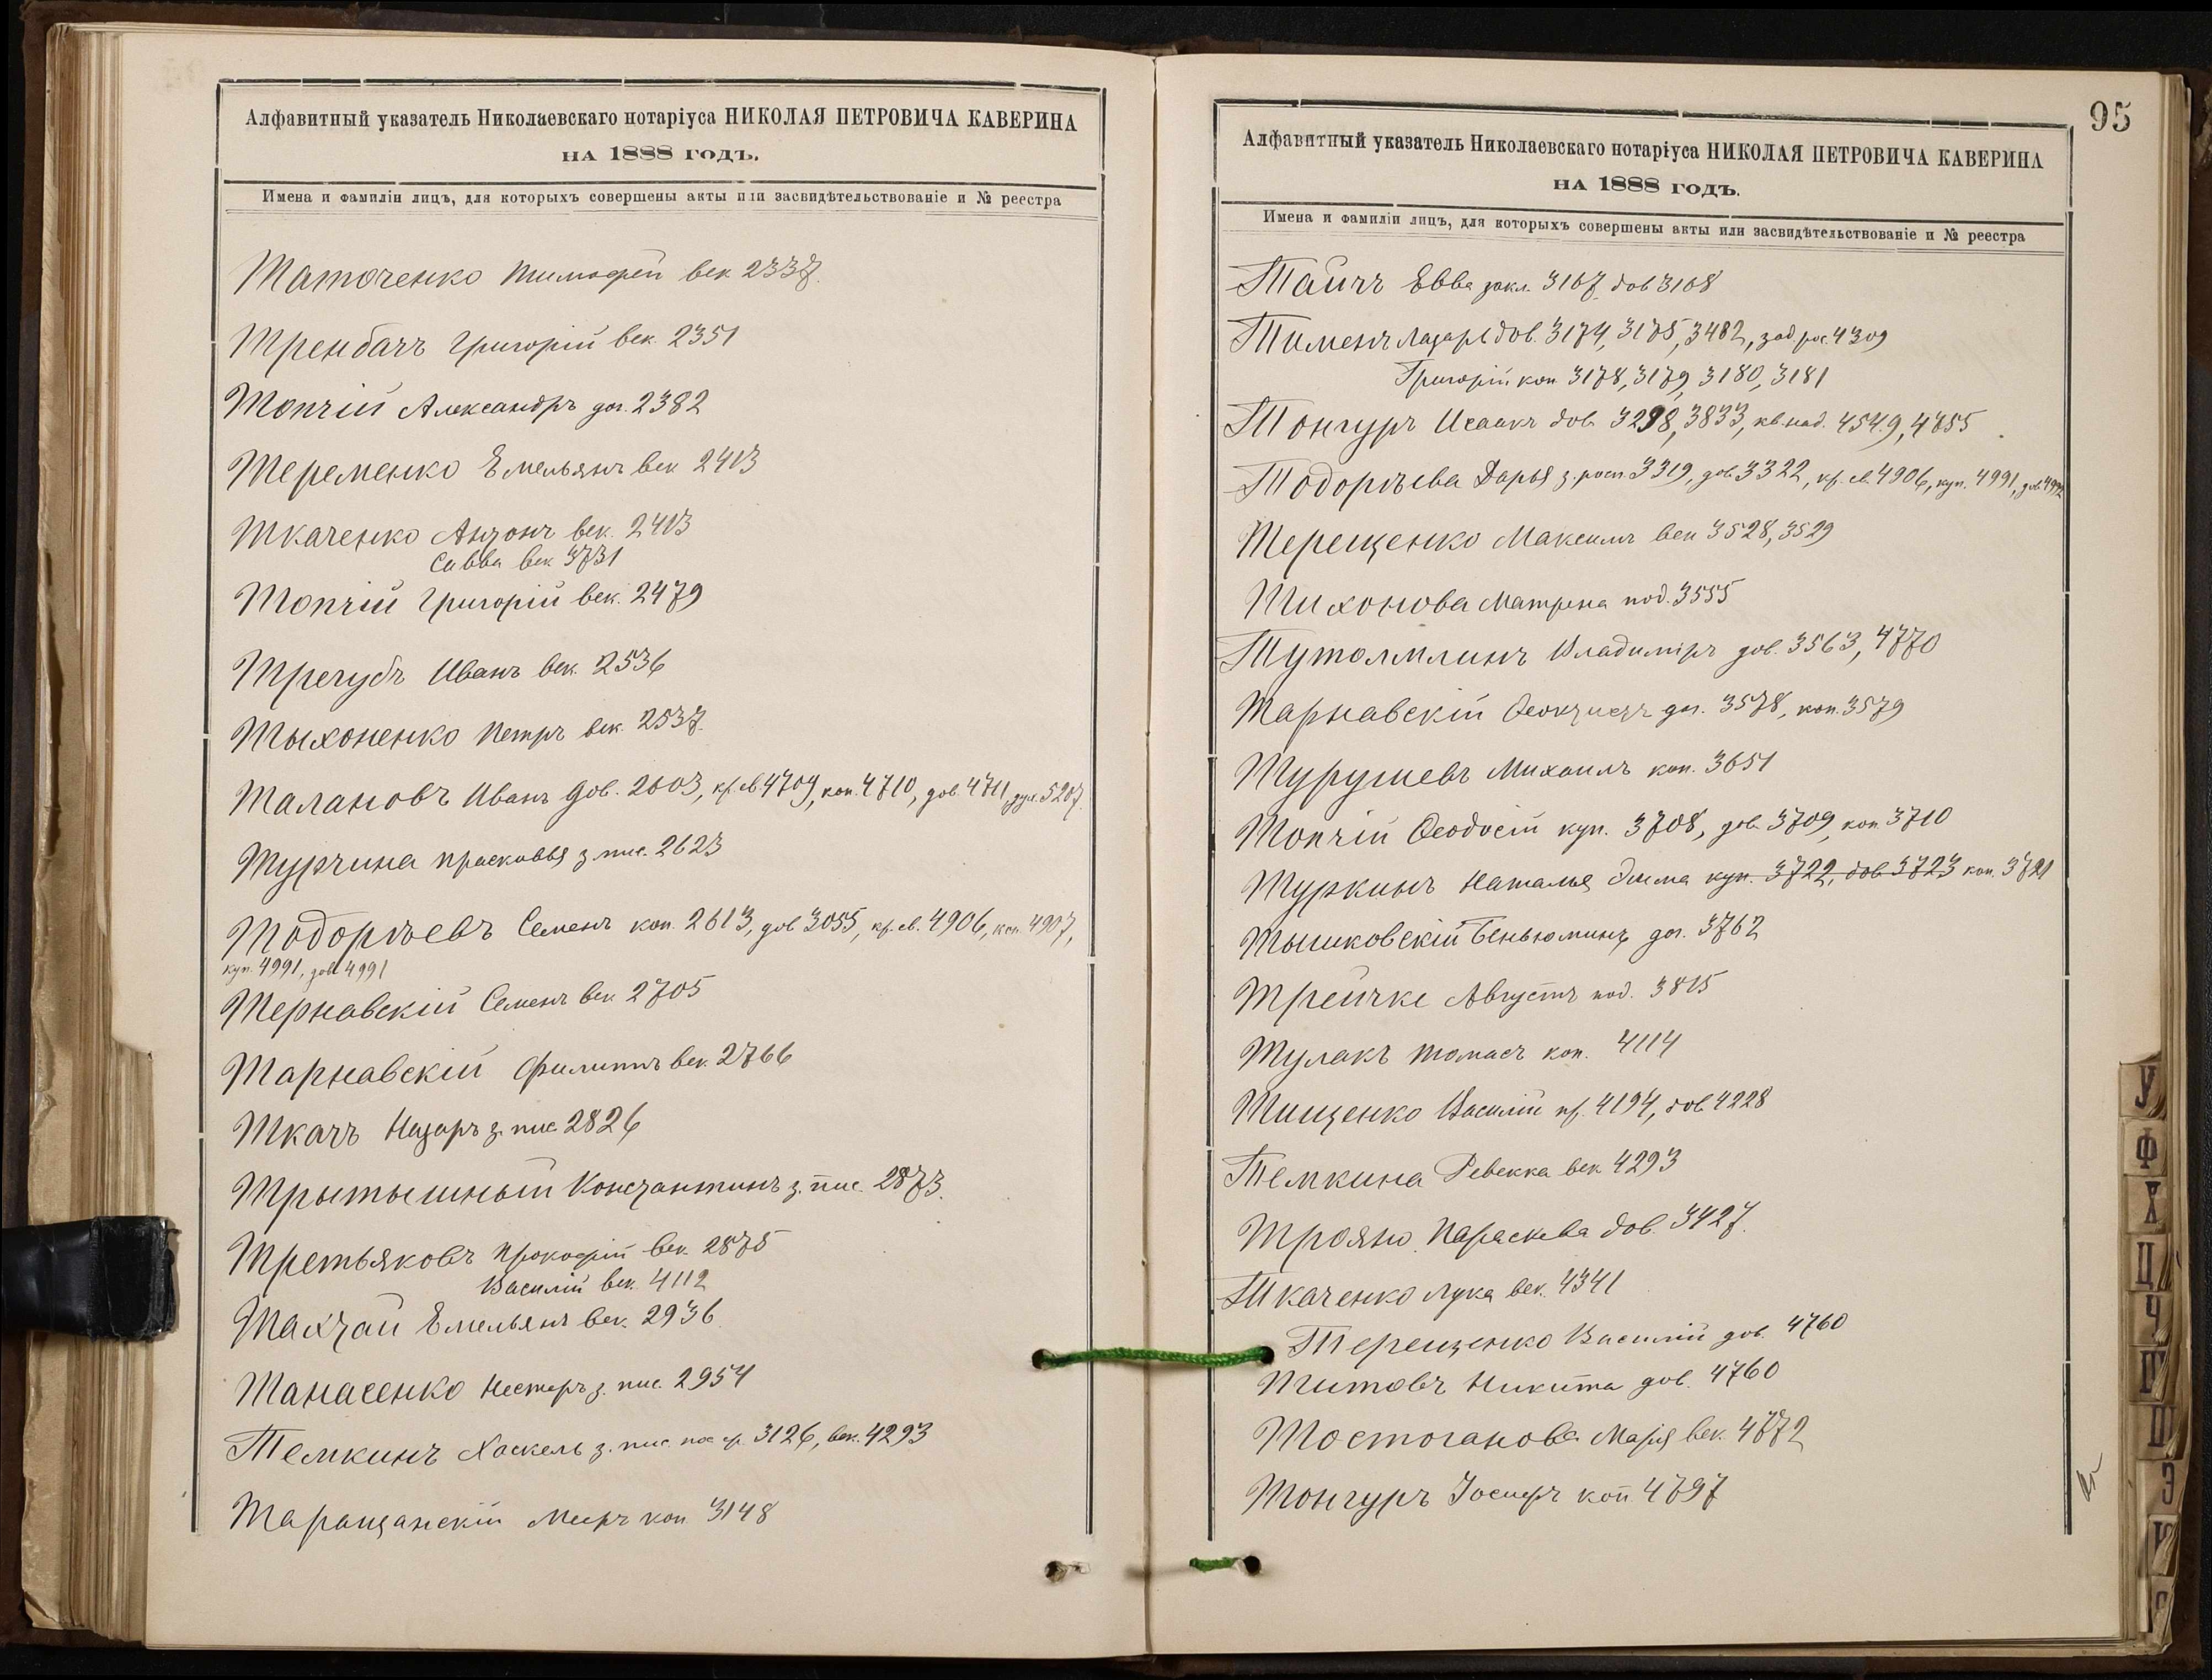 Алфавитный указатель Николаевскаго нотаріуса НИКОЛАЯ ПЕТРОВИЧА КАВЕРИНА
НА 1888 ГОДЪ.
Имена и фамиліи лицъ, для которыхъ совершены акты или засвидѣтельствованіе и № реестра
Таточенко Тимофей век. 2337.
Тренбачъ Григорій век. 2351
Топчій Александръ дог. 2382
Теременко Емельянъ век 2413
Ткаченко Антонъ век. 2413
Савва век 3731
Топчій Григорій век. 2479
Трегубъ Иванъ век. 2536
Тыхоненко Петръ век. 2537.
Талановъ Иванъ дов. 2603, кр. св. 4709, коп. 4710, дов. 4711, 5207.
Турчина Прасковья з. пис. 2623
Тодорѣевъ Семенъ коп. 2613, дов 3055, кр. св. 4906, коп. 4907,
куп. 4991, дов 4991
Тернавскій Семенъ век 2705
Тарнавскій Филиппъ век. 2766
Ткачъ Назаръ з. пис 2826
Трытышный Константинъ з. пис. 2873.
Третьяковъ Прокофій век. 2875
Василій век. 4112
Тахтай Емельянъ век. 2936
Танасенко Нестеръ з. пис. 2954
Темкинъ Хаскель з. пис. 3126, век. 4293
Таращанскій Мееръ коп 3148
95
Алфавитный указатель Николаевскаго нотаріуса НИКОЛАЯ ПЕТРОВИЧА КАВЕРИНА
НА 1888 ГОДЪ.
Имена и фамиліи лицъ, для которыхъ совершены акты или засвидѣтельствованіе и № реестра
Тайчъ Евва закл. 3167, дов 3168
Тименъ Лазарь дов. 3174, 3175, 3482, зад. рос. 4309
Григорій коп 3178, 3179, 3180, 3181
Тонгуръ Исаакъ дов. 3298, 3833, кв. над. 4549, 4855
Тодорѣева Дарья з. росп. 3319, дов. 3322, кр. св. 4906, куп. 4991, дов. 4992
Терещенко Максимъ век 3528, 3529
Тихонова Матрена под. 3555
Тутолмлинъ Владиміръ дов. 3563, 4770
Тарнавскій Ѳеоктистъ дог. 3578, коп. 3579
Турушевъ Михаилъ коп. 3651
Топчій Ѳеодосій куп. 3708, дов. 3709, коп 3710
Туркинъ Наталья Эмма куп. 3722, дов 3723 коп. 3721
Тышковскій Беньюминъ дог. 3762
Трейчке Августъ под. 3815
Тулакъ Томасъ коп. 4114
Тищенко Василій пр. 4194, дов 4228
Темкина Ревекка век 4293
Трояно Параскева дов. 3427.
Ткаченко Лука век. 4341
Терещенко Василій дов. 4760
Титовъ Никита дов. 4760
Тостоганова Марія век. 4772
Тонгуръ Іосифъ коп 4797
У
Ф
Х
Ц
Ч
Ш
Э